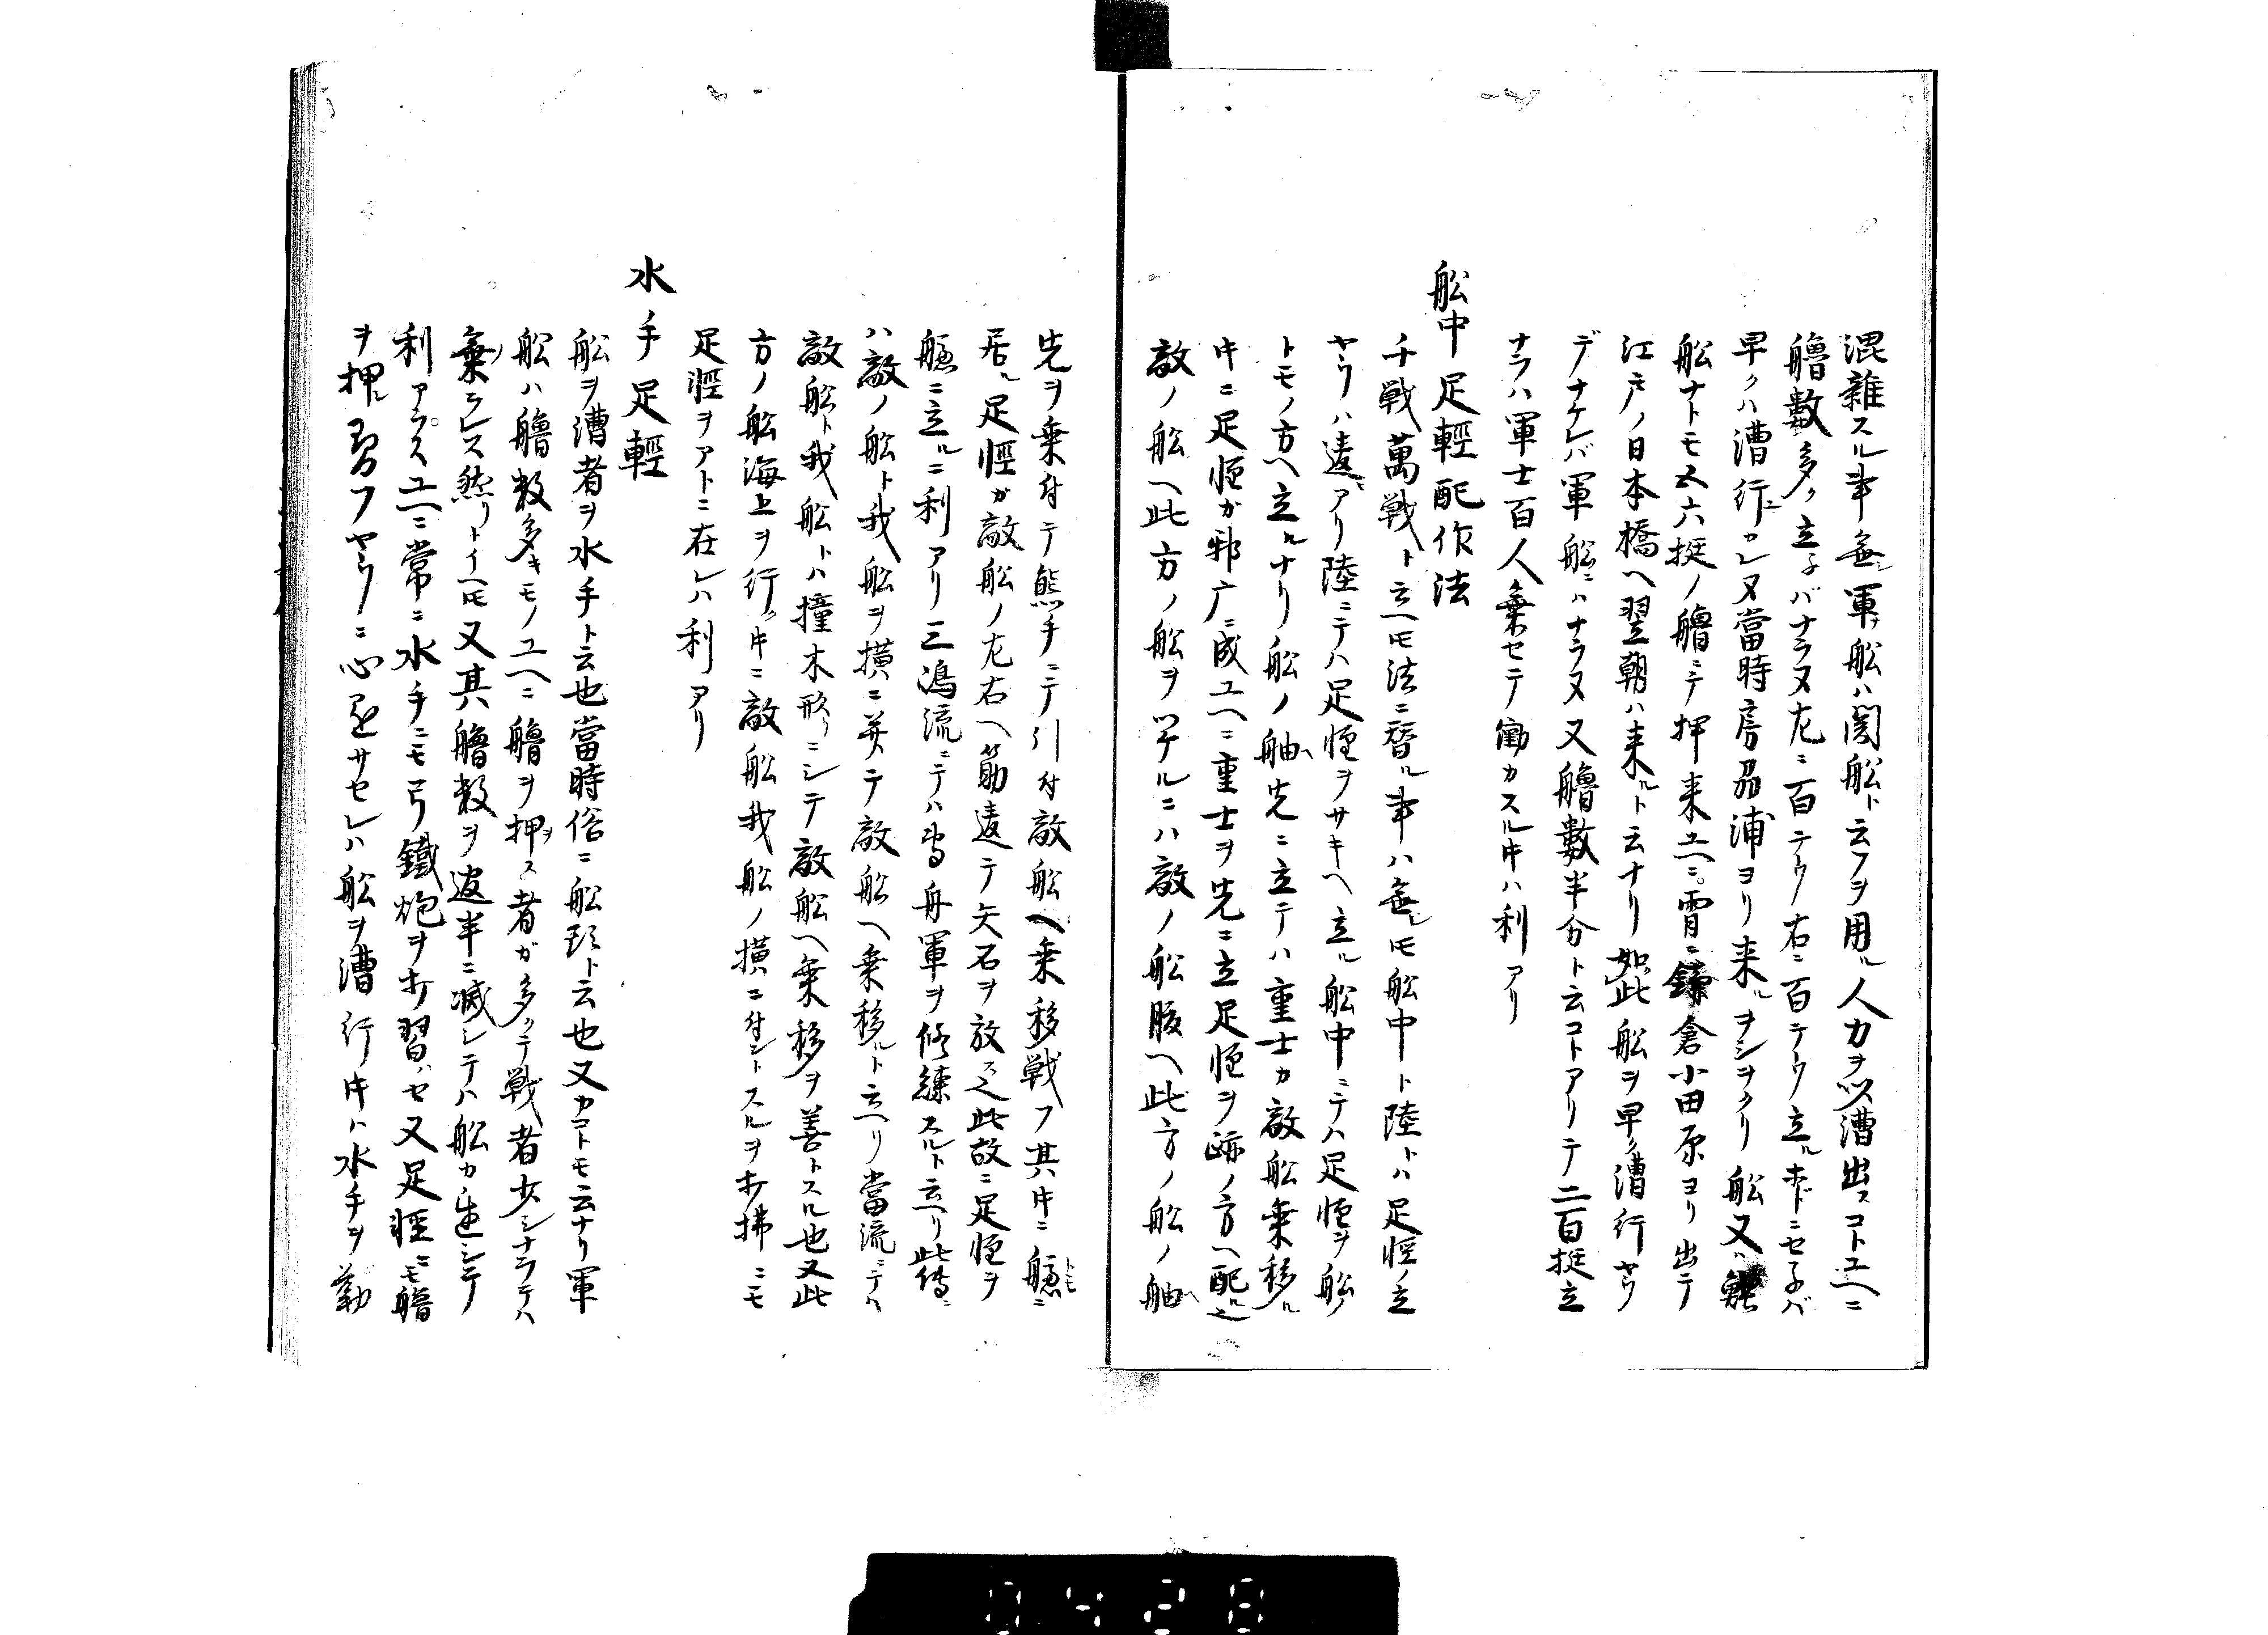 混雑スル事無シ軍船ハ関船ト云フヲ用ル人力ヲ以漕出スコトユヘニ
艪数多ク立子バナラヌ左ニ百テウノ右ニ百テウノ立ルホドニセ子バ
早クハ漕行カレヌ當時房刕浦ヨリ来ルヲシヲクリ船又ハ
船ナトモ五六挺ノ艪ニテ押来ユヘニ宵ニ鎌倉小田原ヨリ出テ
江戸ノ日本橋ヘ翌朝ハ来ルト云ナリ如此船ヲ早ク漕行ヤウ
デナケレバ軍船ニハナラヌ又艪數半分ト云コトアリテ二百挺立
ナラハ軍士百人乗セテ働カスル片ハ利アリ
船中足輕配作法
千戦萬戦ト云ヘ㞮法ニ替ル事ハ無レ㞮船中ト陸トハ足軽ノ立
ヤウハ違アリ陸ニテハ足軽ヲサキヘ立ル船中ニテハ足軽ヲ船ノ
トモノ方ヘ立ルナリ船ノ舳先ニ立テハ重士カ敵船乗移ル
片ニ足軽ガ邪广ニ成ユヘニ重士ヲ先ニ立足軽ヲ跡ノ方ヘ配ル也
敵ノ船ヘ此方ノ船ヲツケルニハ敵ノ船腹ヘ此方ノ船ノ舳
先ヲ乗付テ熊手ニテ引付敵船ヘ乗移戦フ其片ニ艫ニ
居ル足軽ガ敵船ノ左右ヘ筋違テ矢石ヲ放ス也此故ニ足軽ヲ
艫ニ立ルニ利アリ三嶋流ニテハ専舟軍ヲ修練スルト云ヘリ此傳ニ
ハ敵ノ船ト我船ヲ横ニ並テ敵船ヘ乗移ルト云ヘリ當流ニテハ
敵船ト我船トハ撞木形リニシテ敵船ヘ乗移ヲ善トスル也又此
方ノ船海上ヲ行ク片ニ敵船我船ノ横ニ付ントスルヲ打拂ニモ
足軽ヲアトニ在レハ利アリ
水手足輕
船ヲ漕者ヲ水手ト云也當時俗ニ船頭ト云也又カコトモ云ナリ軍
船ハ艪数多キモノユヘニ艪ヲ押ス者ガ多クテ戦者少シナラテハ
乗ラレス然リトイヘ㞮又其艪数ヲ過半ニ減シテハ船カ進シテ
利アラスユヘニ常ニ水手ニモ弓鐵炮ヲ打習ハセ又足軽ニモ艪
ヲ押ル習フヤウニ心㝎サセレハ船ヲ漕行片ハ水手ヲ勤